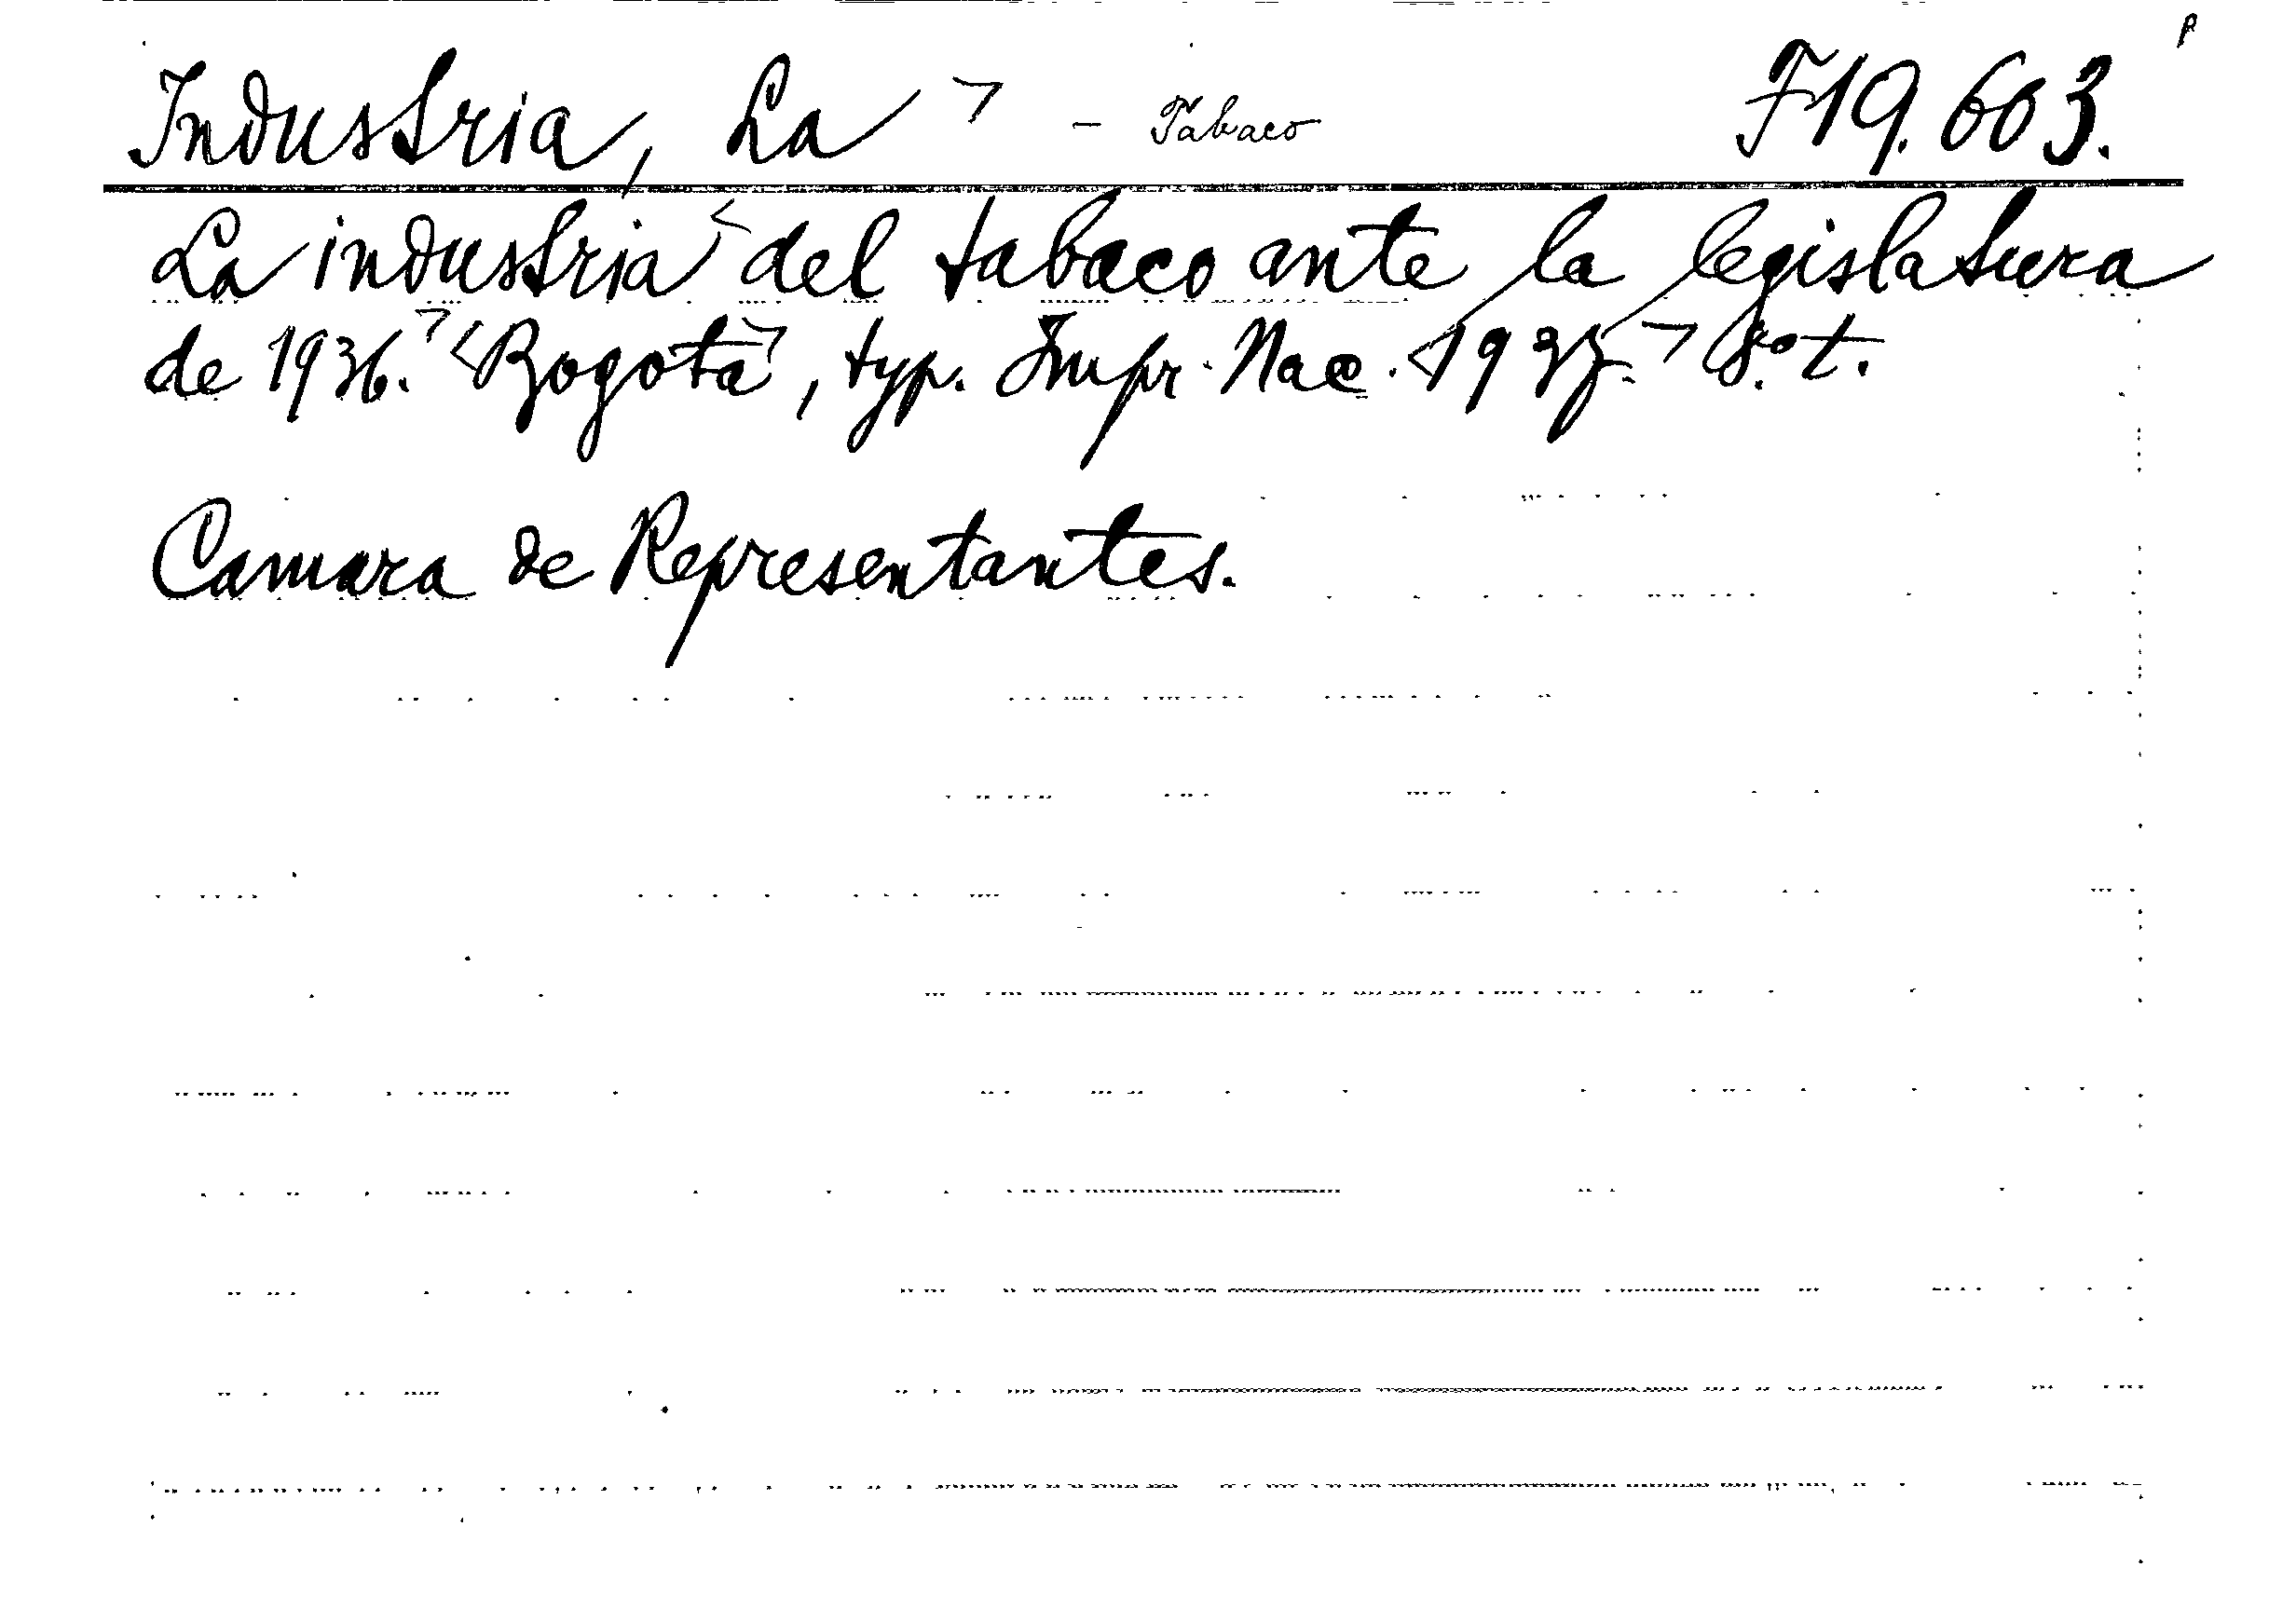 Industria, La - Tabaco F19.603.
La industria del tabaco ante la legislatura
de 1936. Bogotá, typ. Impr. Nac. 1937. 8.° t.
Camara de Representantes.